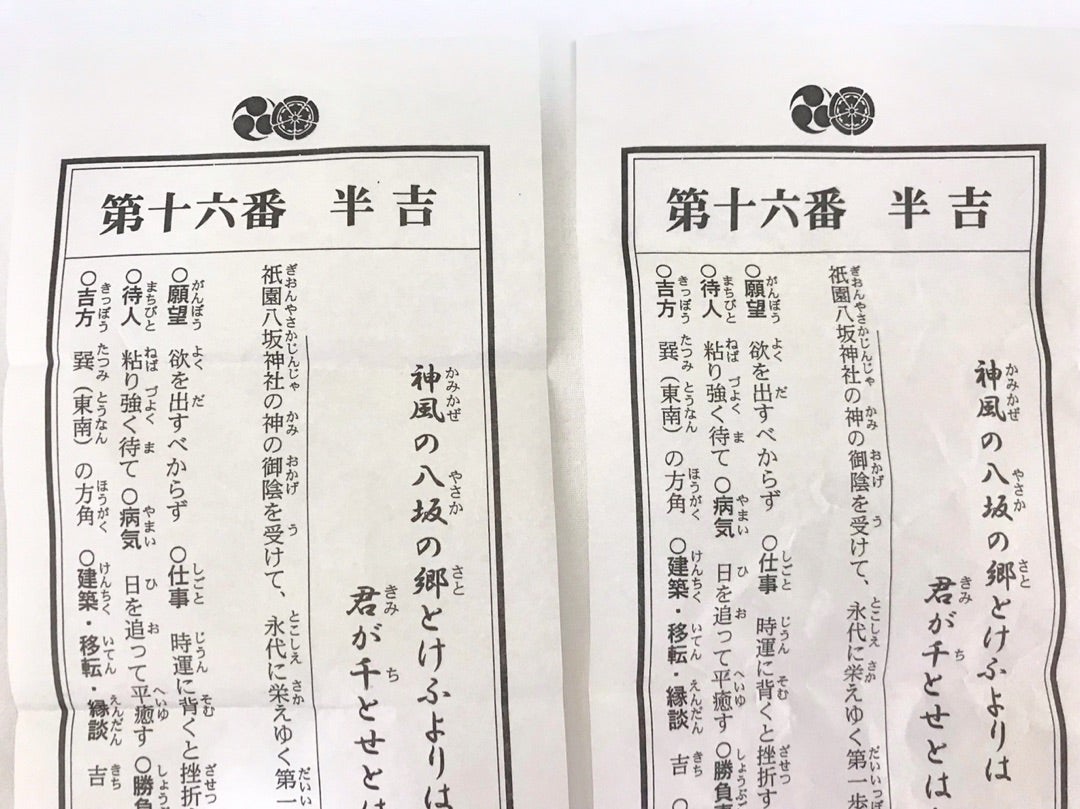 第十六番 半吉
神風の八坂の郷とけふよりは
君が千とせとは
祇園八坂神社の神の御陰を受けて、永代に栄えゆく第一
○願望 欲を出すべからず ○仕事 時運に背くと挫折
○待人 粘り強く待て ○病気 日を追って平癒す ○勝負
○吉方 巽（東南）の方角 ○建築・移転・縁談 吉
第十六番 半吉
神風の八坂の郷とけふよりは
君が千とせとは
祇園八坂神社の神の御陰を受けて、永代に栄えゆく第一歩
○願望 欲を出すべからず ○仕事 時運に背くと挫折す
○待人 粘り強く待て ○病気 日を追って平癒す ○勝負
○吉方 巽（東南）の方角 ○建築・移転・縁談 吉 ○